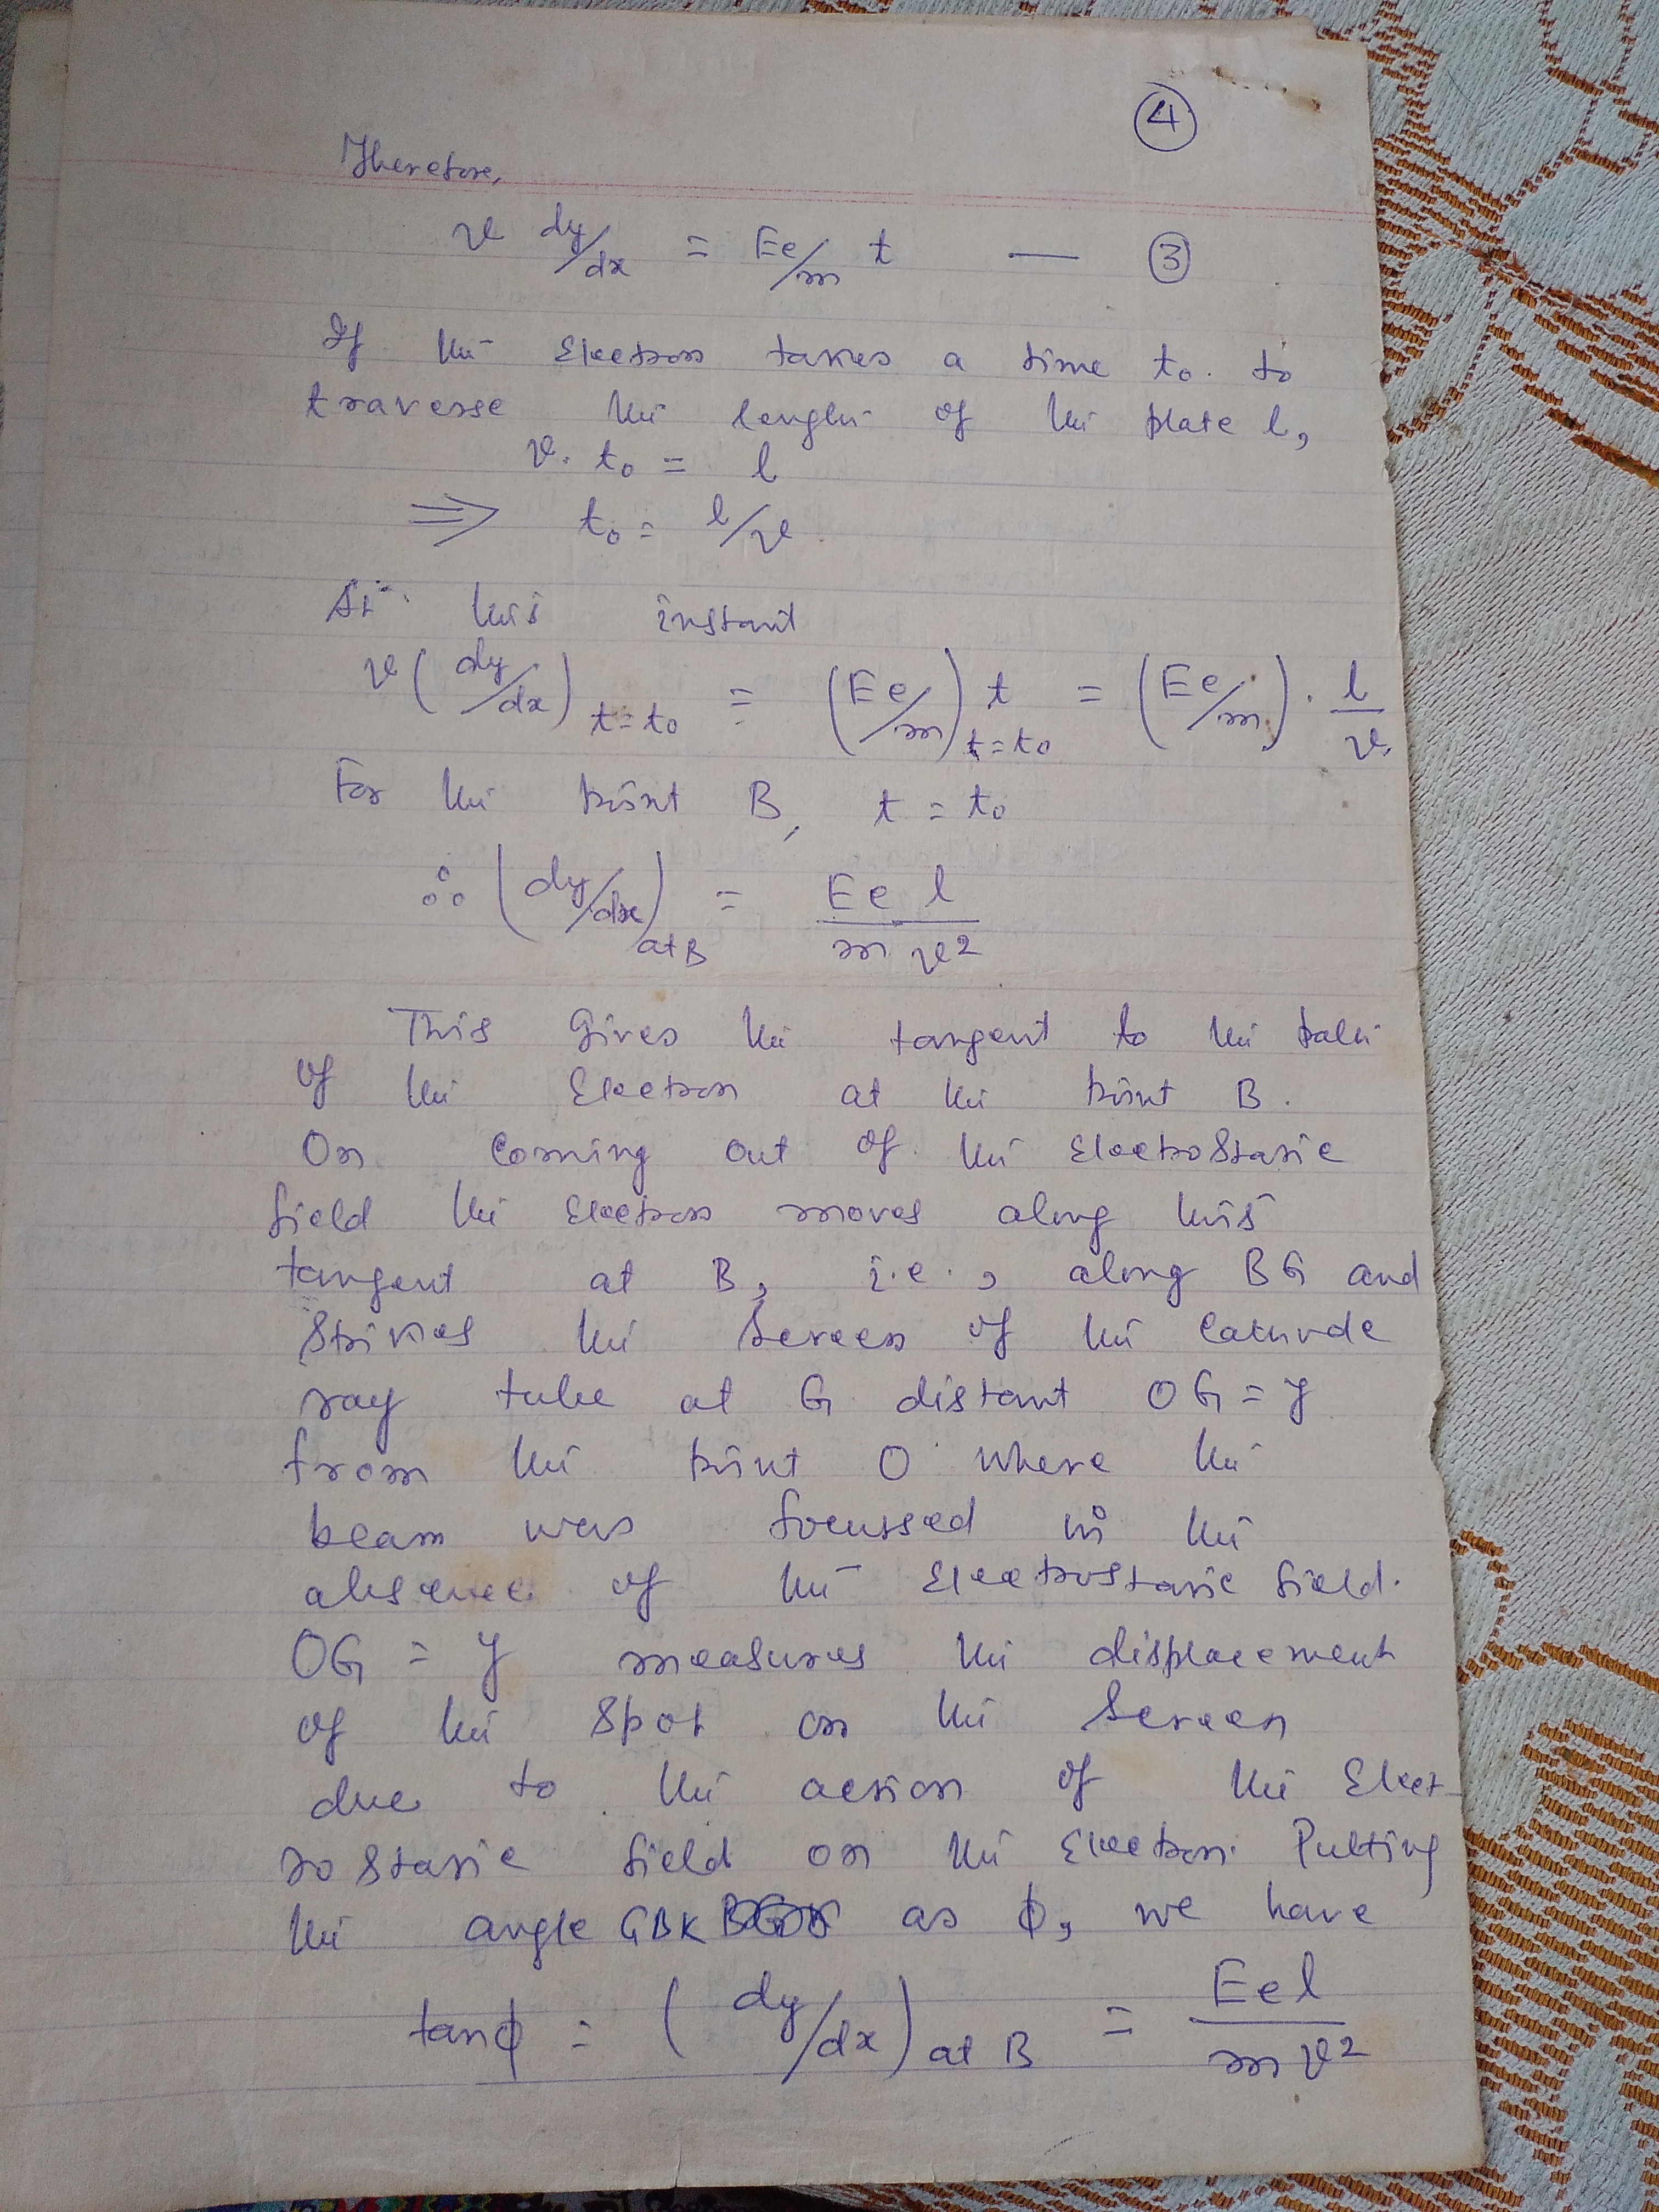 4
Therefore,
v dy/dx = Ee/m t — 3
If the electron takes a time t₀ to
traverse the length of the plate l,
v. t₀ = l
⇒ t₀ = l/v
At this instant
v (dy/dx) t=t₀ = (Ee/m) t t=t₀ = (Ee/m) · l/v
For the point B, t = t₀
∴ (dy/dx) at B = Eel/mv²
This Gives the tangent to the path
of the Electron at the point B.
On coming out of the Electrostatic
field the Electron moves along this
tangent at B, i.e., along BG and
strikes the Screen of the cathode
ray tube at G distant OG = y
from the point O where the
beam was focussed in the
absence of the Electrostatic field.
OG = y measures the displacement
of the spot on the Screen
due to the action of the Elect-
rostatic field on the Electron. Putting
the angle GBK as ϕ, we have
tanϕ = (dy/dx) at B = Eel/mv²